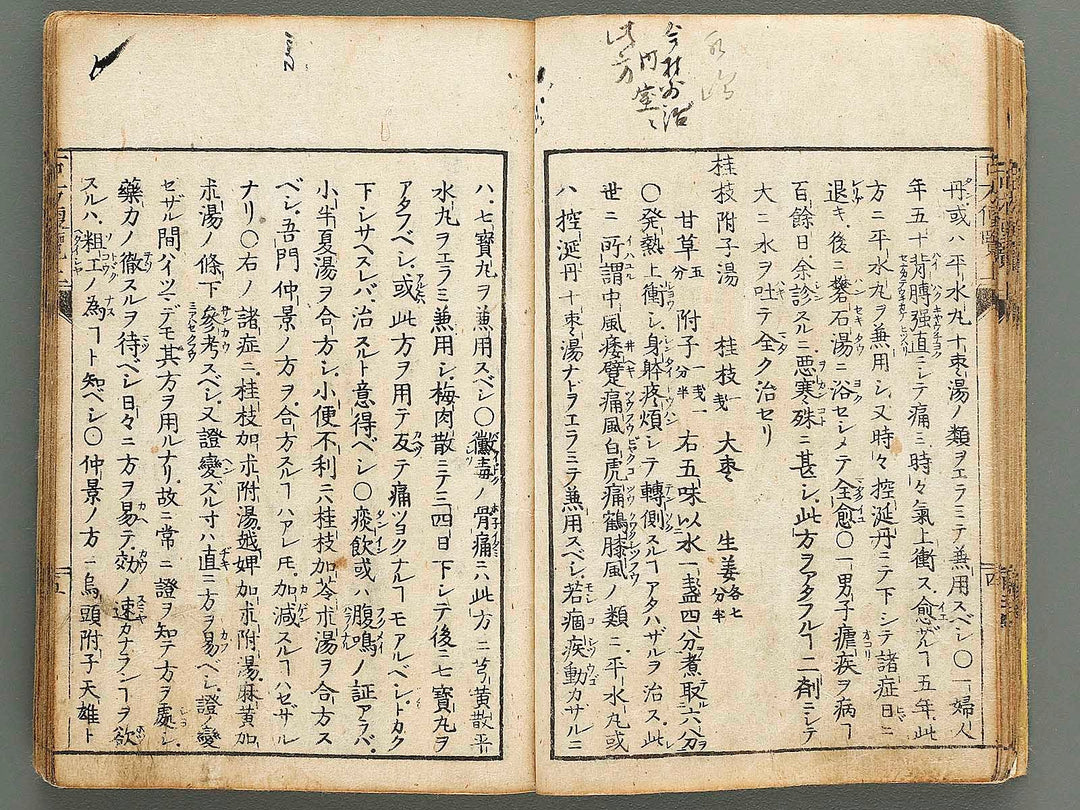 丹或ハ平水丸十棗湯ノ類ヲエラミテ兼用スベシ〇一婦人
年五十背膊强直ニシテ痛ミ時々氣上衝ス愈ザルヿ五年此
方ニ平水丸ヲ兼用シ又時々控涎丹ニテ下シテ諸症日ニ
退キ後ニ礬石湯ニ浴セシメテ全愈〇一男子瘧疾ヲ病ヿ
百餘日余診スルニ悪寒殊ニ甚シ此方ヲアタフルヿ二劑ニシテ
大ニ水ヲ吐テ全ク治セリ
桂枝附子湯 桂枝一戔 大棗 生姜各七分半
甘草五分 附子一戔一分半 右五味以水一盞四分煮取六分
〇発熱上衝シ身躰疼煩シテ轉側スルヿアタハザルヲ治ス此
世ニ所謂中風痿躄痛風白虎痛鶴膝風ノ類ニ平水丸或
ハ控涎丹十棗湯ナドヲエラミテ兼用スベシ若痼疾動カザルニ
ハ七寳丸ヲ兼用スベシ〇黴毒ノ骨痛ニハ此方ニ芎黄散平
水丸ヲエラミ兼用シ梅肉散ニテ三四日下シテ後ニ七寳丸ヲ
アタフベシ或ハ此方ヲ用テ反テ痛ツヨクナルヿモアルベシトカク
下シサヘスレバ治スルト意得ベシ〇痰飲或ハ腹鳴ノ証アラバ
小半夏湯ヲ合方シ小便不利ニハ桂枝加苓朮湯ヲ合方ス
ベシ吾門仲景ノ方ヲ合方スルヿハアレ𪜈加減スルヿハセザル
ナリ〇右ノ諸症ニ桂枝加朮附湯越婢加朮附湯麻黄加
朮湯ノ條下參考スベシ又證變ズル寸ハ直ニ方ヲ易ベシ證變
セザル間ハイツマデモ其方ヲ用ルナリ故ニ常ニ證ヲ知テ方ヲ處シ
藥力ノ徹スルヲ待ベシ日々ニ方ヲ易テ効ノ速カナランヿヲ欲
スルハ粗工ノ為ヿト知ベシ〇仲景ノ方一烏頭附子天雄ト